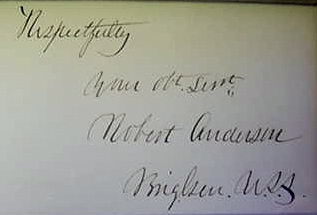 Respectfully
Your Obt. Servt.
Robert Anderson
Brig Gen. U.S.A.